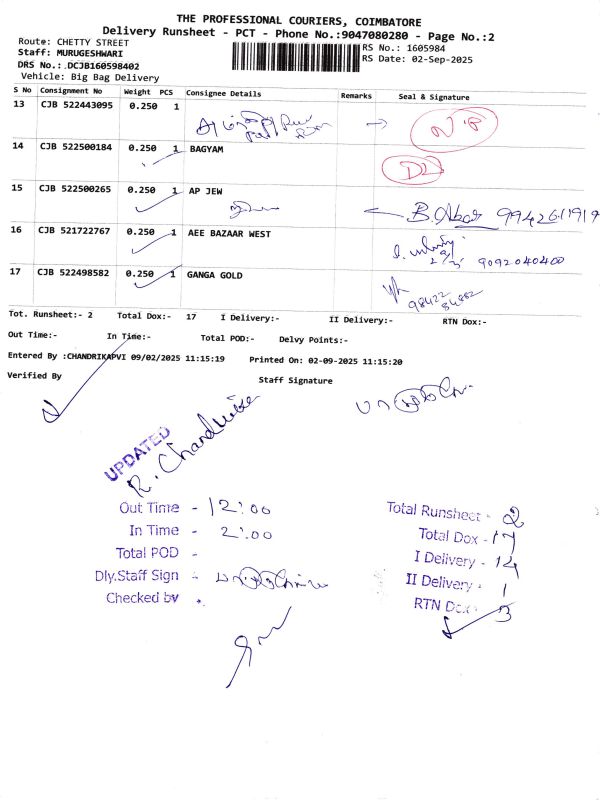 THE PROFESSIONAL COURIERS, COIMBATORE
Delivery Runsheet - PCT - Phone No.:9047080280 - Page No.:2
Route: CHETTY STREET
RS No: 1605984
Staff: MURUGESHWARI
RS Date: 02-Sep-2025
DRS No.:.DCJB160598402
Vehicle: Big Bag Delivery
S No Consignment No Weight PCS Consignee Details Remarks Seal & Signature
13 CJB 522443095 0.250 1
14 CJB 522500184 0.250 1 BAGYAM
15 CJB 522500265 0.250 1 AP JEW
9942611919
16 CJB 521722767 0.250 1 AEE BAZAAR WEST
9092040400
17 CJB 522498582 0.250 1 GANGA GOLD
98422
84882
Tot. Runsheet:- 2 Total Dox:- 17 I Delivery:- II Delivery:- RTN Dox:-
Out Time:- In Time:- Total POD:- Delvy Points:-
Entered By :CHANDRIKAPVI 09/02/2025 11:15:19 Printed On: 02-09-2025 11:15:20
Verified By Staff Signature
UPDATED
R. Chandrika
Out Time - 12:00
In Time - 2:00
Total POD -
Dly.Staff Sign -
Checked by -
Total Runsheet - 2
Total Dox - 17
I Delivery - 14
II Delivery - 1
RTN Dox - 3